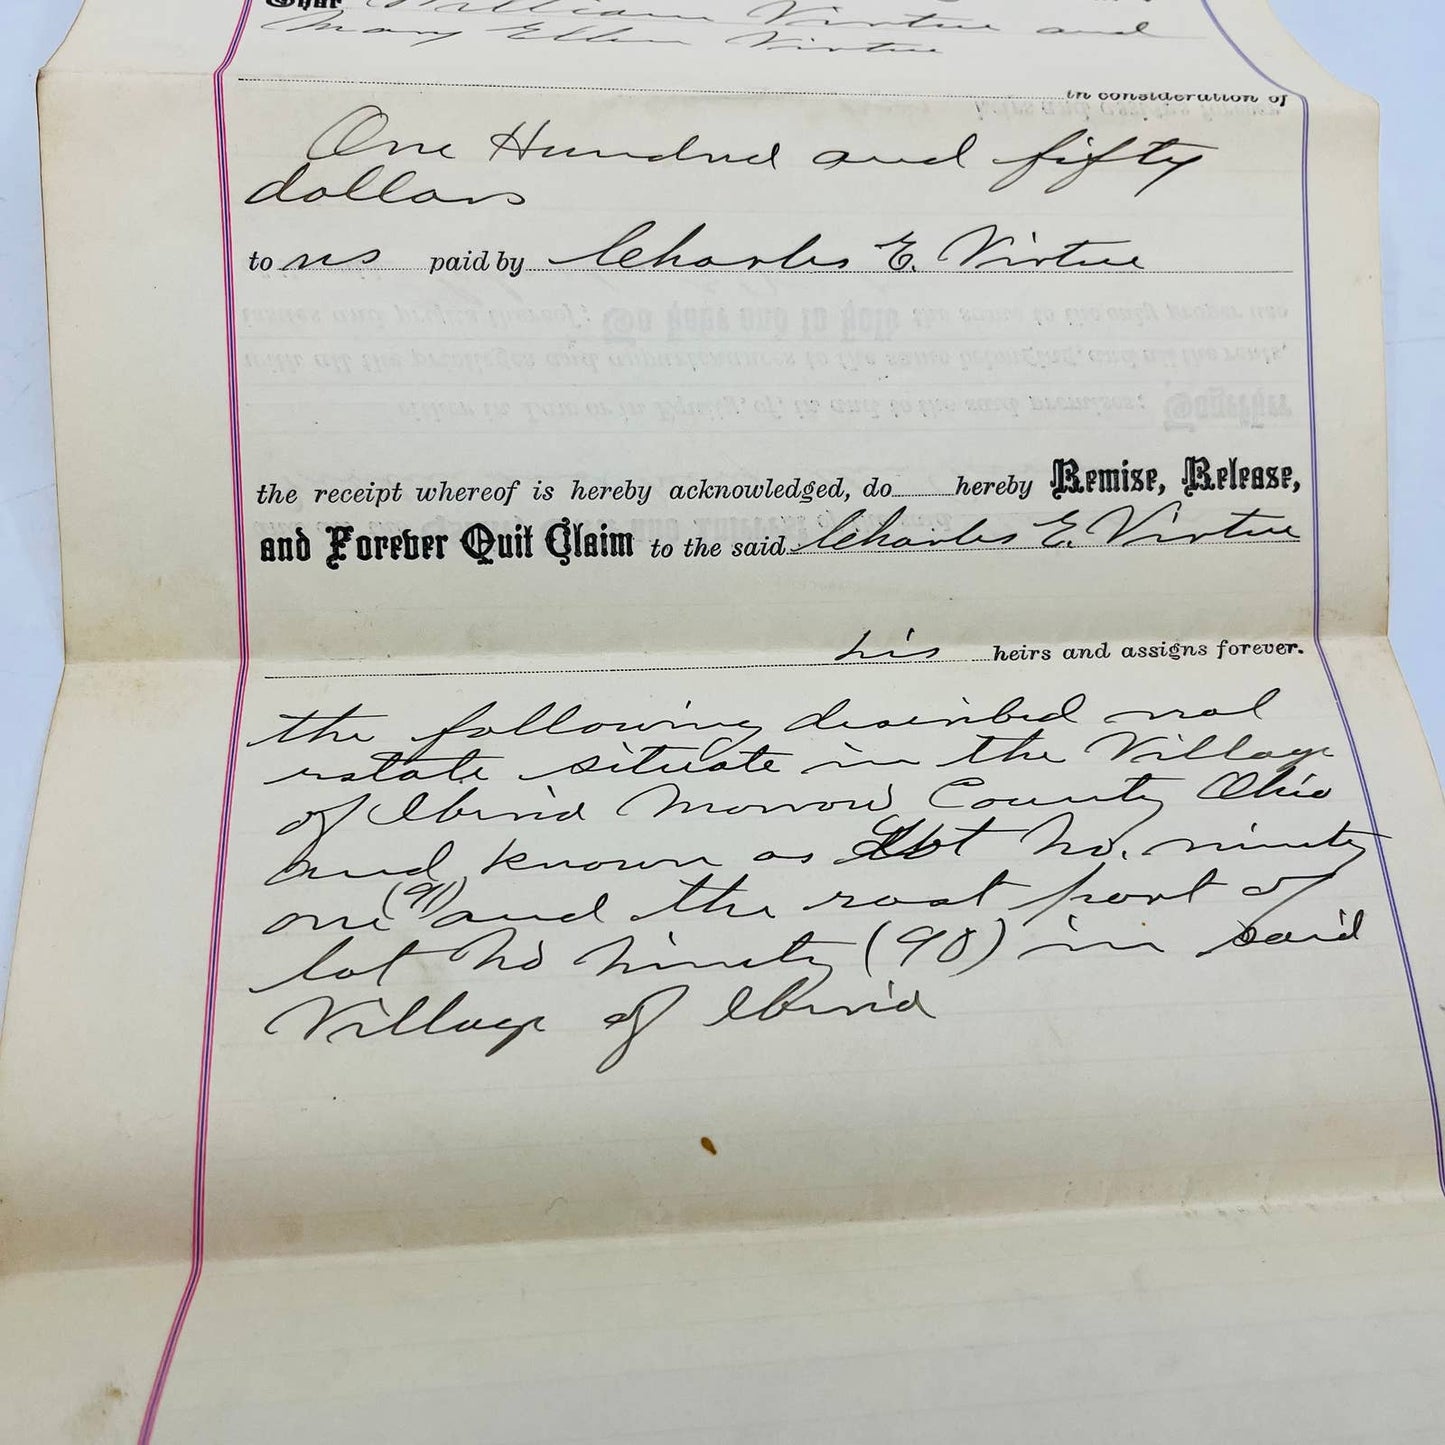 That William Virtue and
Mary Ellen Virtue
in consideration of
One Hundred and fifty
dollars
to us paid by Charles E. Virtue
the receipt whereof is hereby acknowledged, do hereby Remise, Release,
and Forever Quit Claim to the said Charles E. Virtue
his heirs and assigns forever.
the following described real
estate situate in the Village
of Iberia Morrow County Ohio
and known as Lot No. ninety
one (91) and the east part of
lot No ninety (90) in said
Village of Iberia